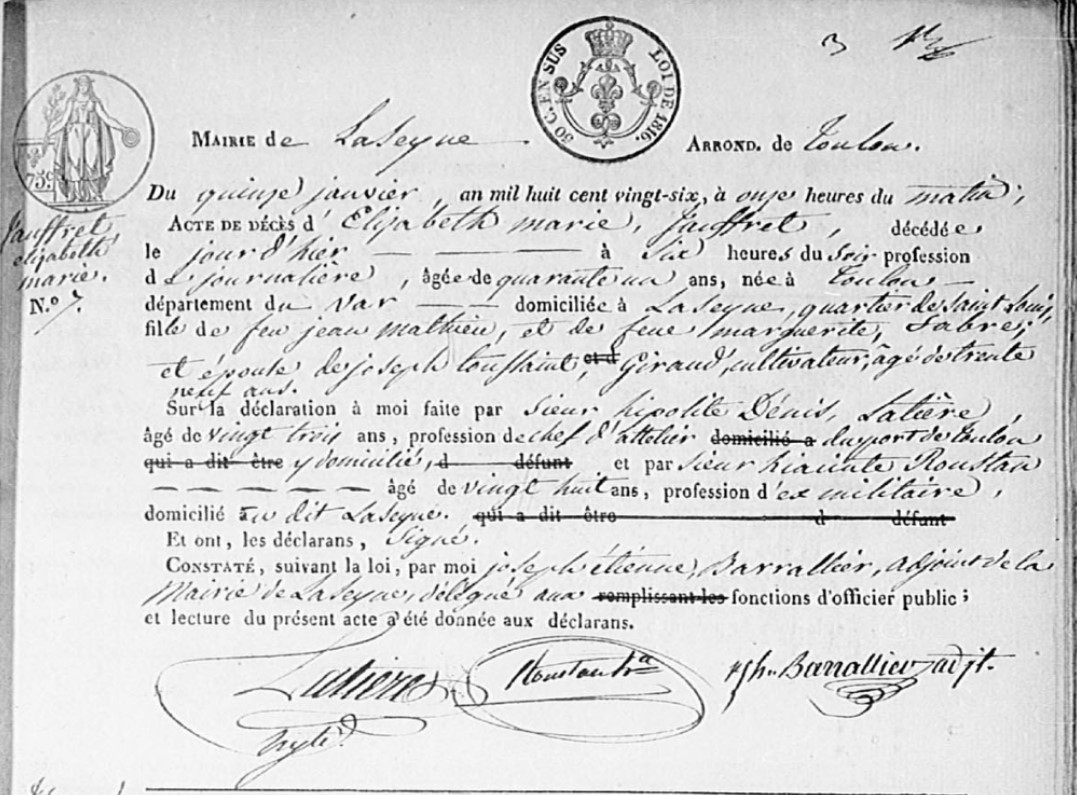 3
50 C. EN SUS LOI DE 1816.
75 c.
MAIRIE de Laseyne ARROND. de toulon.
Du quinze janvier, an mil huit cent vingt-six, à onze heures du matin,
Jauffret
elizabeth
marie.
N.º 7.
ACTE DE DÉCÈS d' Elizabeth marie, Jauffret, décédée
le jour d'hier — — à Six heures du Soir profession
de journalière, âgée de quarante un ans, née à toulon —
département du Var — domiciliée à Laseyne, quartier de Saint Louis,
fille de feu jean mathieu, et de feue marguerite, Fabre;
et épouse de joseph toussaint, et d Giraud, cultivateur, âgé de trente
neuf ans.
Sur la déclaration à moi faite par Sieur hipolite Dénis, Latière,
âgé de vingt trois ans, profession de chef d'attelier domicilié a du port de toulon
qui a dit être y domicilié, d défunt et par Sieur hiacinte Roustan
— — — — — âgé de vingt huit ans, profession d'ex militaire,
domicilié au dit Laseyne. , qui a dit être d défunt
Et ont, les déclarans, Signé.
CONSTATÉ, suivant la loi, par moi joseph étienne, Barrallier, adjoint de la
Mairie de Laseyne, délégué aux remplissant les fonctions d'officier public;
et lecture du présent acte a été donnée aux déclarans.
Latiere Roustan Barrallier adjt.
hyte